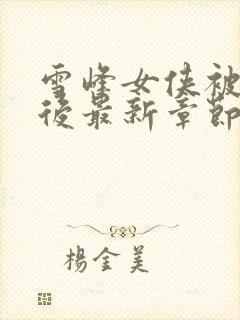 雪峰女侠被
後最新章節
楊金美